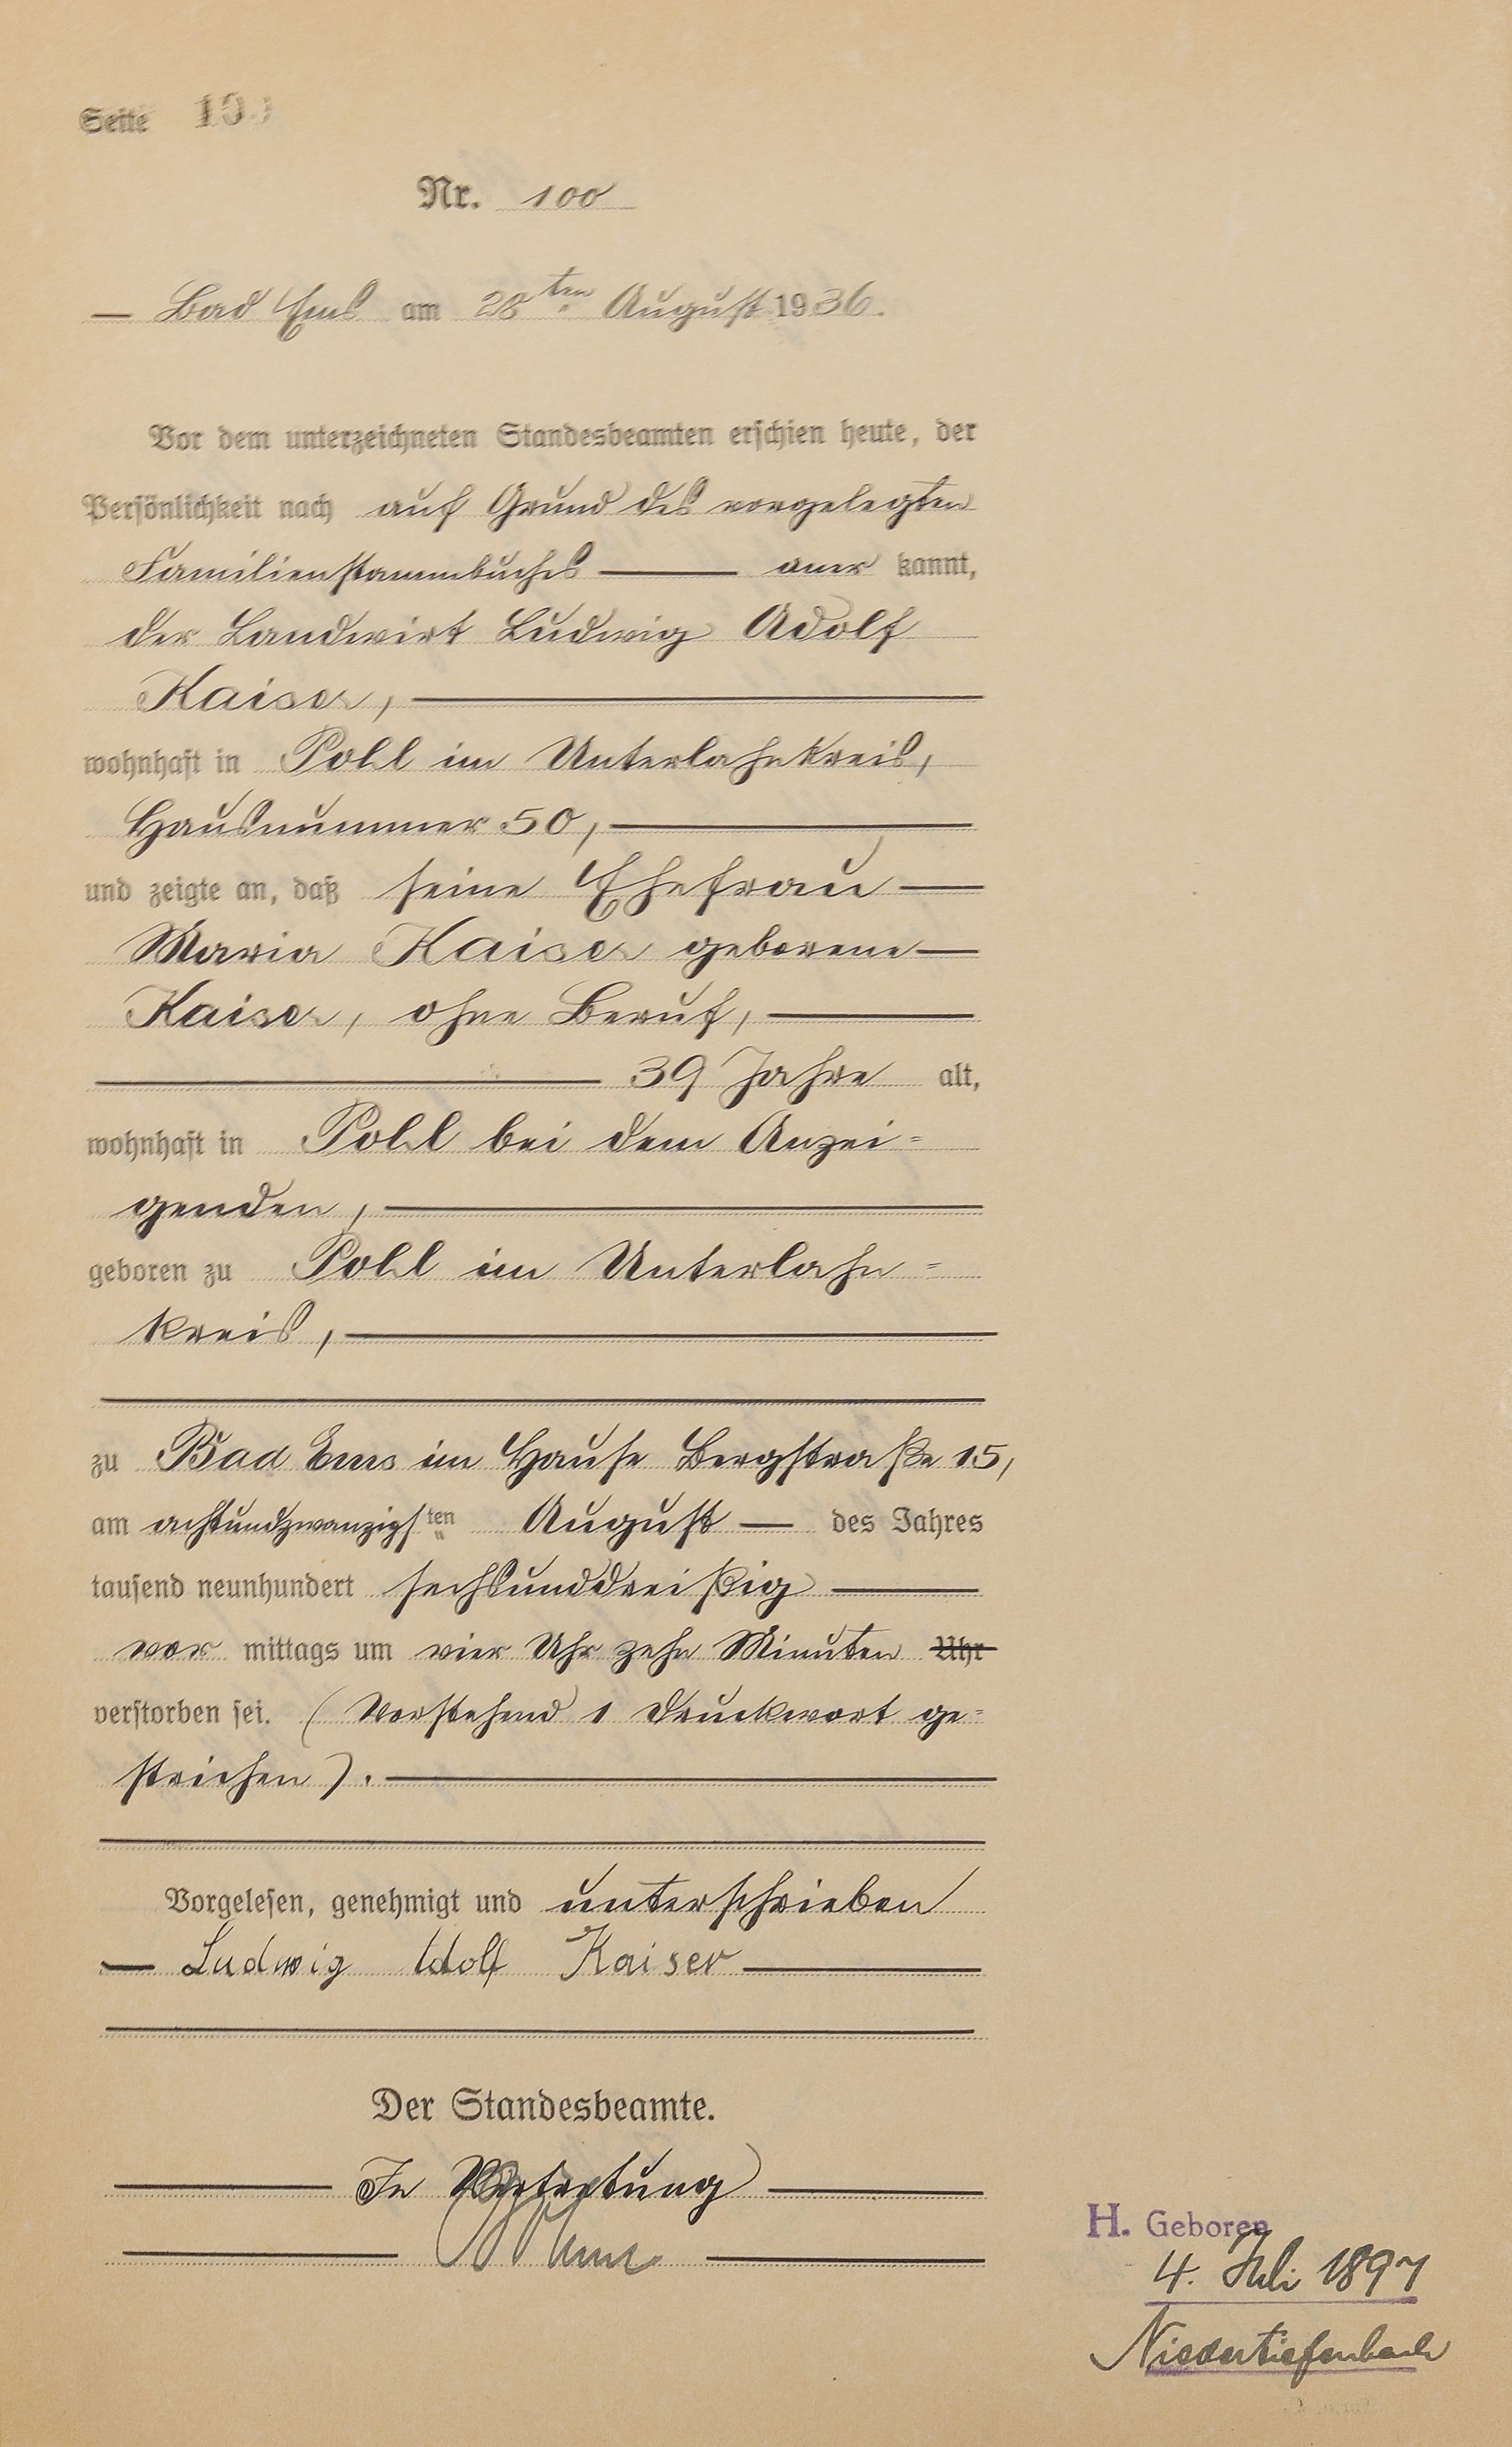 Seite 100
Nr. 100
— Bad Ems am 28ten August 1936.
Vor dem unterzeichneten Standesbeamten erschien heute, der
Persönlichkeit nach auf Grund des vorgelegten
Familienstammbuches — aner kannt,
der Landwirt Ludwig Adolf
Kaiser, —
wohnhaft in Pohl im Unterlahnkreis,
Hausnummer 50, —
und zeigte an, daß seine Ehefrau —
Maria Kaiser geborene —
Kaiser, ohne Beruf, —
— 39 Jahre alt,
wohnhaft in Pohl bei dem Anzei=
genden, —
geboren zu Pohl im Unterlahn=
kreis, —
zu Bad Ems im Hause Bergstraße 15,
am achtundzwanzigsten August — des Jahres
tausend neunhundert sechsunddreißig —
vor mittags um vier Uhr zehn Minuten Uhr
verstorben sei. (Vorstehend 1 Druckwort ge=
strichen). —
Vorgelesen, genehmigt und unterschrieben
— Ludwig Adolf Kaiser —
Der Standesbeamte.
— In Vertretung —
H. Geboren
4. Juli 1897
Niedertiefenbach